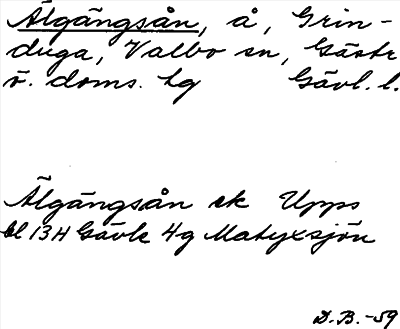 Älgängsån, å, Grin-
duga, Valbo sn, Gästr
ö. doms. tg Gävl. l.
Älgängsån ek Upps
bl 13H Gävle 4g Matyxsjön
D.B.-59